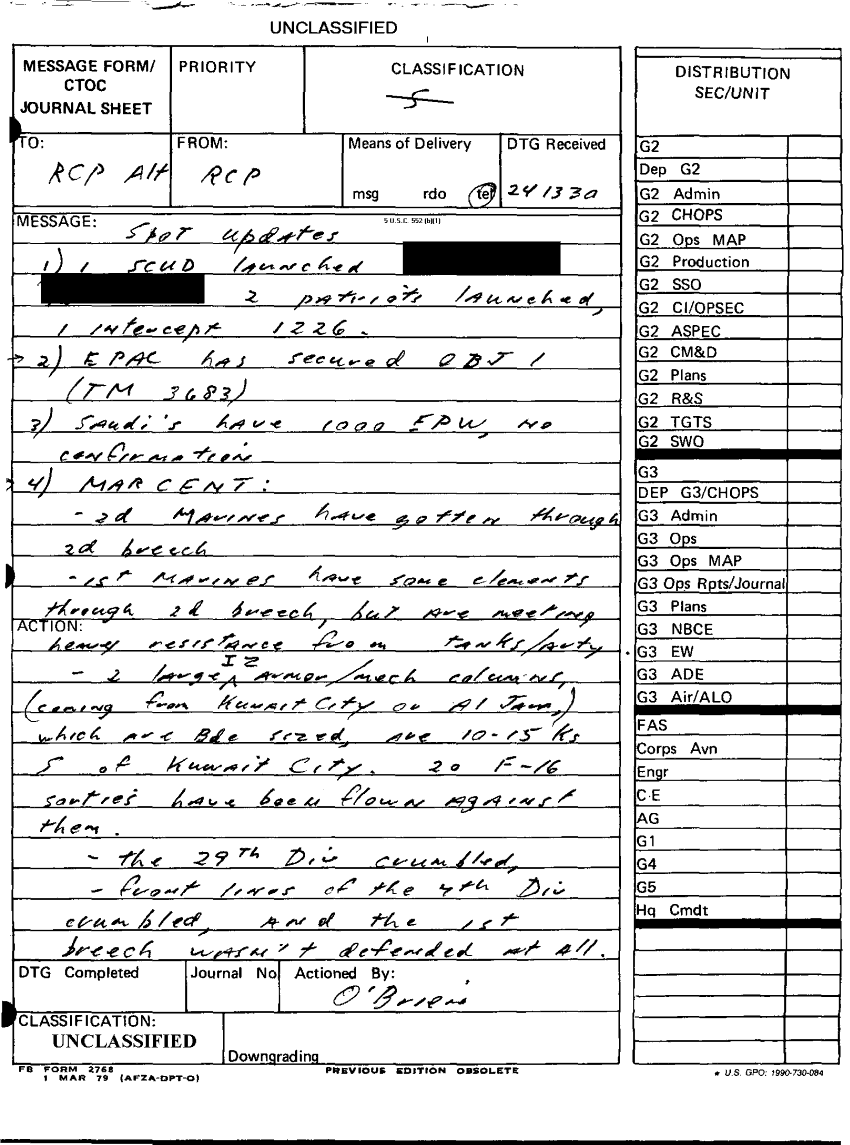 UNCLASSIFIED
MESSAGE FORM/
CTOC
JOURNAL SHEET
PRIORITY
CLASSIFICATION
S
TO:
RCP Alt
FROM:
RCP
Means of Delivery
msg rdo tel
DTG Received
241330
MESSAGE:
5 U.S.C. 552 (b)(1)
Spot updates
1) 1 SCUD launched
2 patriots launched,
1 intercept 1226.
→ 2) EPAC has secured OBJ 1
(TM 3683)
3) Saudi's have 1000 EPW, no
confirmation
→ 4) MARCENT:
- 2d Marines have gotten through
2d breech
- 1st Marines have some elements
through 2d breech, but are meeting
ACTION:
heavy resistance from tanks/arty
- 2 large IZ armor/mech columns,
(coming from Kuwait City or Al Jam,)
which are Bde sized, are 10-15 Ks
S of Kuwait City. 20 F-16
sorties have been flown against
them.
- the 29th Div crumbled,
- front lines of the 4th Div
crumbled, and the 1st
breech wasn't defended at all.
DTG Completed
Journal No
Actioned By:
O'Brien
CLASSIFICATION:
UNCLASSIFIED
Downgrading
FB FORM 2768
1 MAR 79 (AFZA-DPT-O)
PREVIOUS EDITION OBSOLETE
DISTRIBUTION
SEC/UNIT
G2
Dep G2
G2 Admin
G2 CHOPS
G2 Ops MAP
G2 Production
G2 SSO
G2 CI/OPSEC
G2 ASPEC
G2 CM&D
G2 Plans
G2 R&S
G2 TGTS
G2 SWO
G3
DEP G3/CHOPS
G3 Admin
G3 Ops
G3 Ops MAP
G3 Ops Rpts/Journal
G3 Plans
G3 NBCE
G3 EW
G3 ADE
G3 Air/ALO
FAS
Corps Avn
Engr
C-E
AG
G1
G4
G5
Hq Cmdt
* U.S. GPO: 1990-730-084